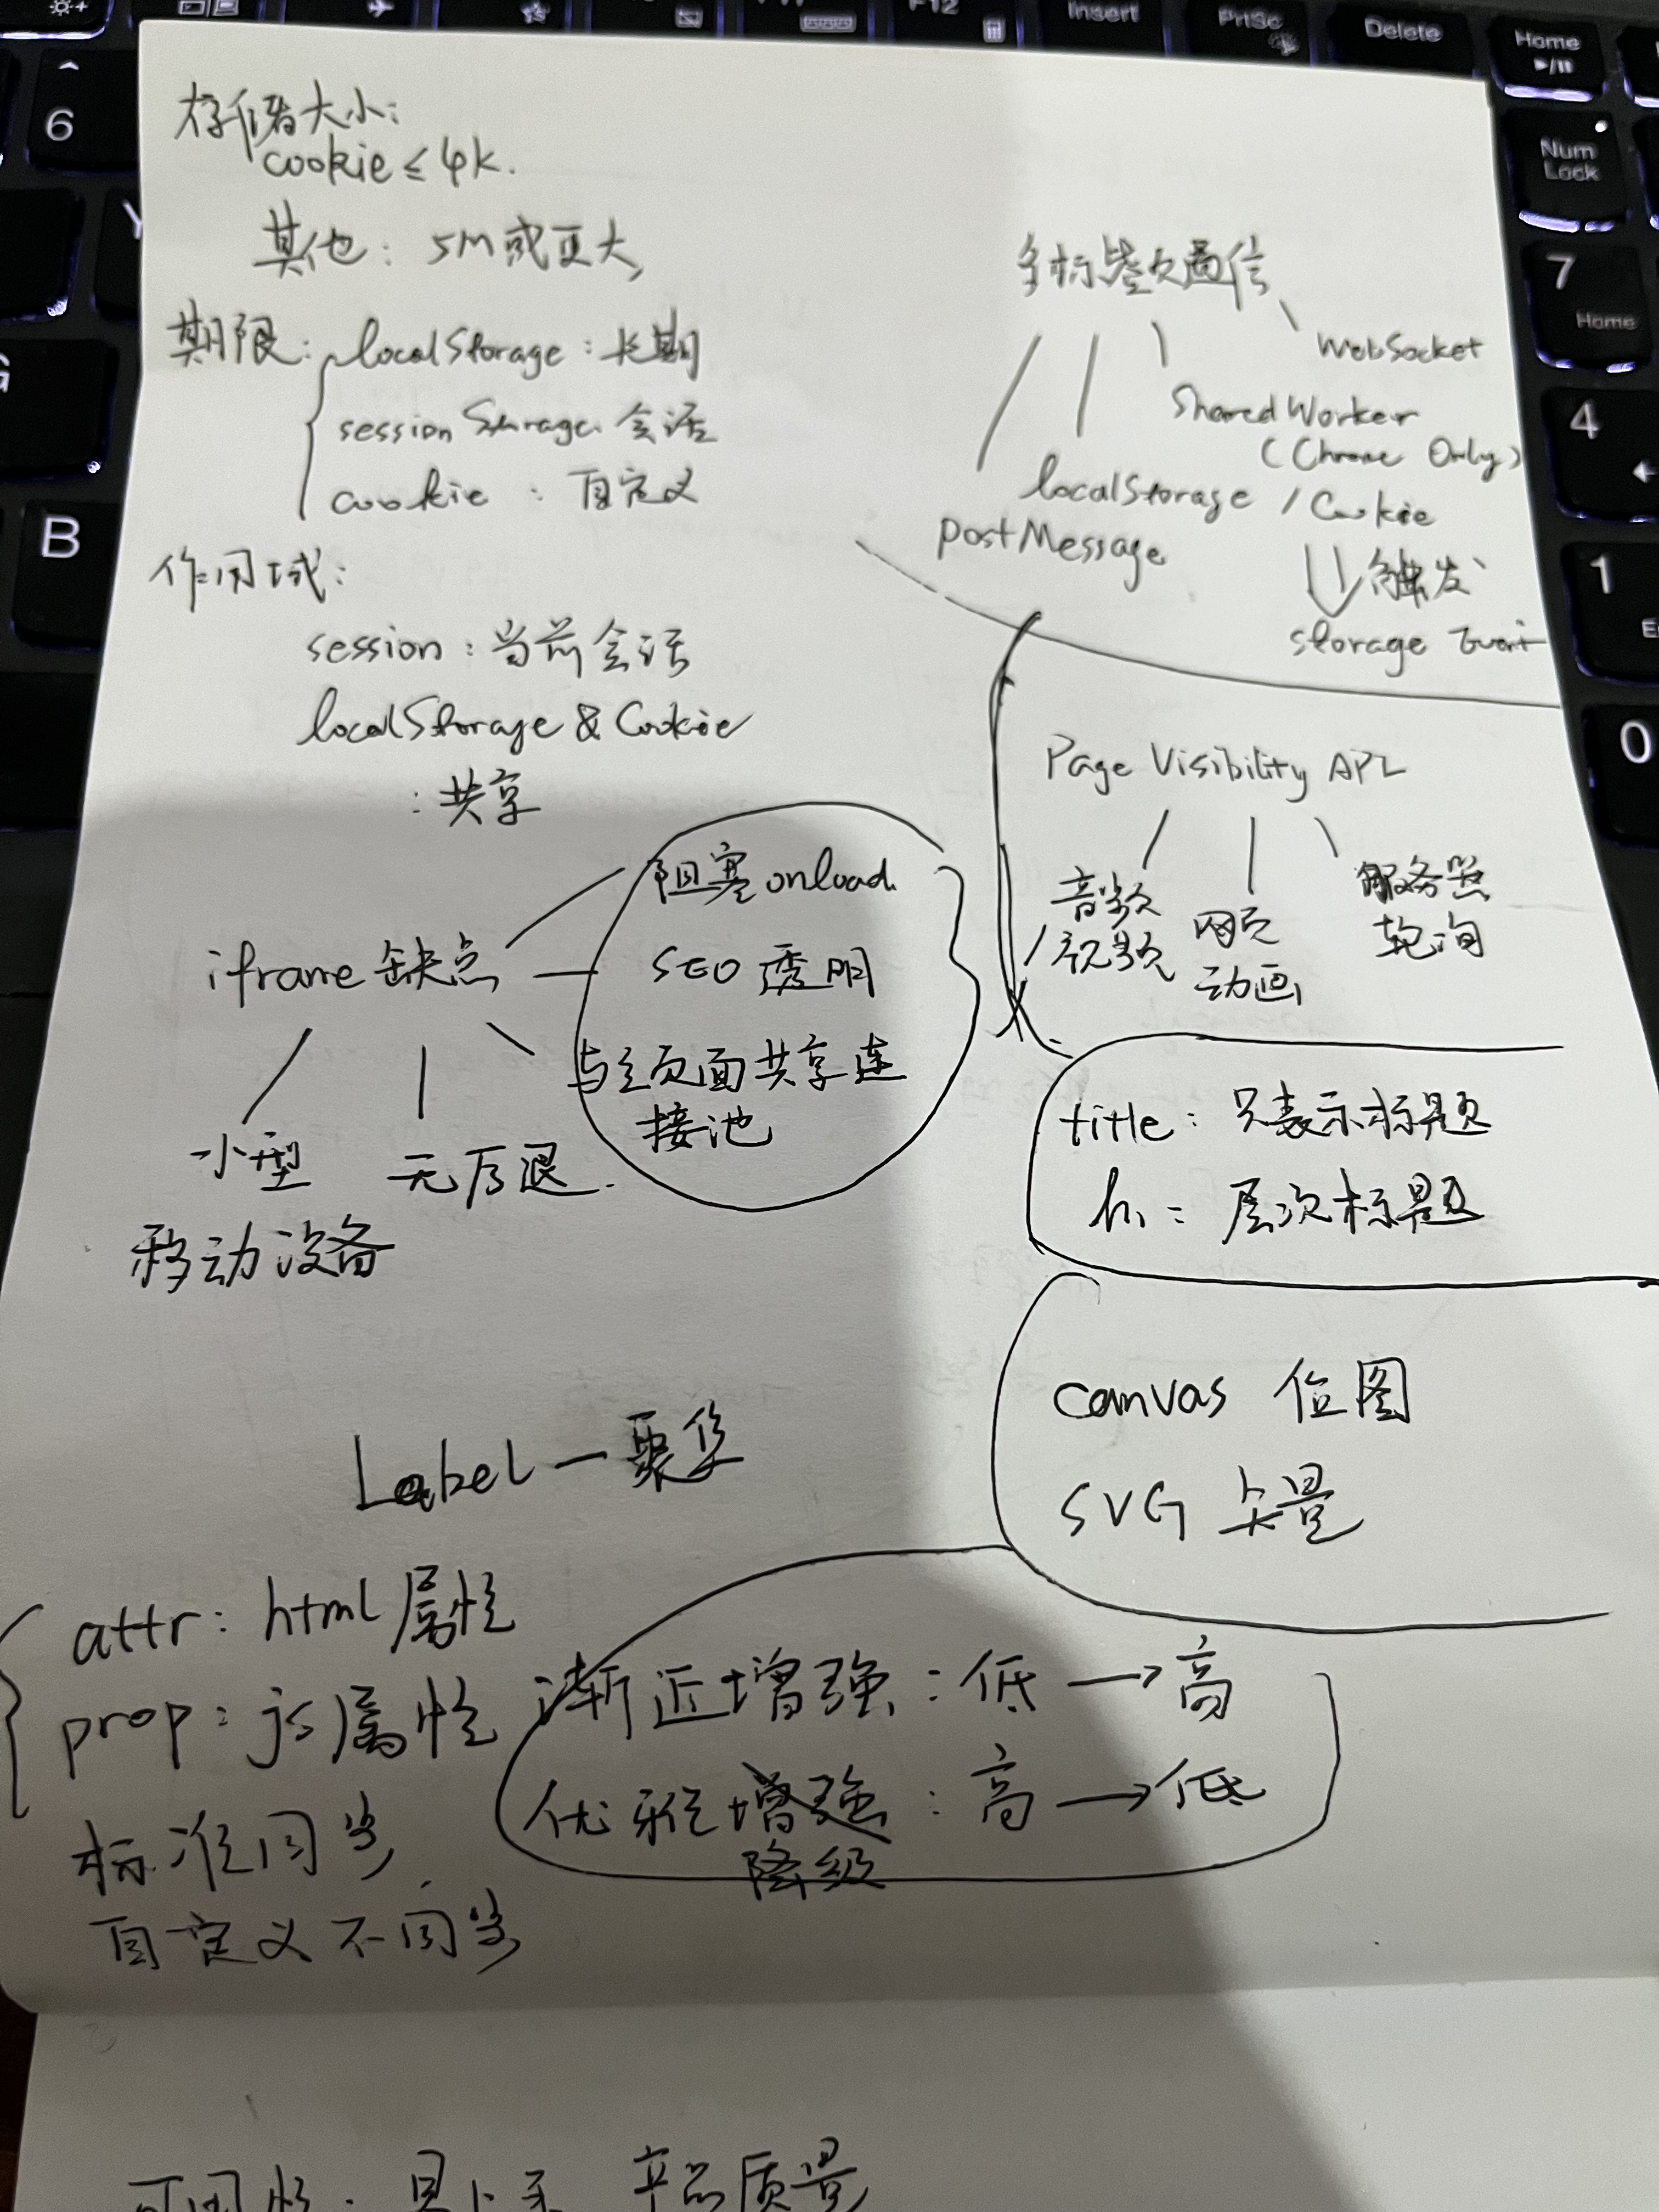 存储大小:
cookie ≤ 4k.
其他: 5M或更大
期限: localStorage: 长期
sessionStorage 会话
cookie : 自定义
作用域:
session: 当前会话
localStorage & Cookie
: 共享
多标签页通信
WebSocket
SharedWorker
(Chrome Only)
localStorage / Cookie
postMessage
触发
storage Event
Page Visibility API
音频
/视频
网页
动画
服务器
轮询
iframe 缺点
阻塞 onload.
SEO 透明
与主页面共享连
接池
小型
移动设备
无后退.
title: 只表示标题
h1: 层次标题
canvas 位图
SVG 矢量
Label — 聚焦
attr: html属性
prop: js属性
标准同步
自定义不同步
渐近增强: 低 → 高
优雅增强: 高 → 低
降级
6
Y
G
B
F12
Insert
PrtSc
Delete
Home
Num
Lock
7
Home
4
1
0